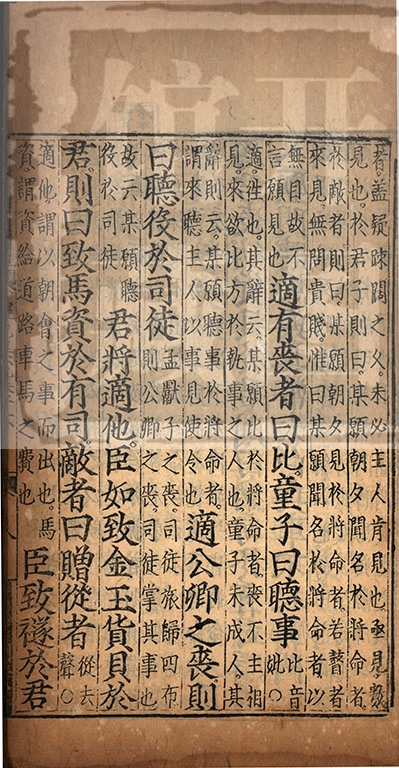 者蓋疑疎闊之久未必主人肯見也亟見數
見也於君子則曰某願朝夕聞名於將命者
於敵者則曰某願朝夕見於將命者若瞽者
來見無問貴賤惟曰某願聞名於將命者以
無目故不
言願見也
適有喪者曰比童子曰聽事
比音
妣○
適往也其辭云某願比於將命者喪不主相
見來欲比方於執事之人也童子未成人其
辭則云某願聽事於將命者
謂來聽主人以事見使令也
適公卿之喪則
曰聽役於司徒
孟獻子之喪司徒旅歸四布
則公卿之喪司徒掌其事也
故云某願聽
役於司徒
君將適他臣如致金玉貨貝於
君則曰致馬資於有司敵者曰贈從者
從去
聲○
適他謂以朝會之事而出也馬
資謂資給道路車馬之費也
臣致禭於君